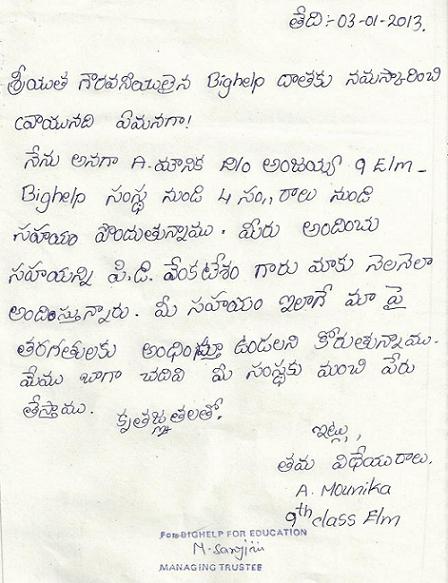 తేది:- 03-01-2013.
శ్రీయుత గౌరవనీయులైన Bighelp దాతకు నమస్కారించి
వ్రాయునది ఏమనగా!
నేను అనగా A. మౌనిక D/o అంజయ్య 9 E/m -
Bighelp సంస్థ నుండి 4 సం,, రాలు నుండి
సహాయం పొందుతున్నాము. మీరు అందించు
సహయన్ని పి.డి. వేంకటేశం గారు మాకు నెలనెలా
అందిస్తున్నారు. మీ సహాయం ఇలాగే మా పై
తరగతులకు అంధిస్తూ ఉండలని కోరుతున్నాము.
మేము బాగా చదివి మీ సంస్థకు మంచి పేరు
తేస్తాము. కృతజ్ఞతలతో.
ఇట్లు,
తమ విధేయురాలు.
A. Mounika
9th class E/m
For BIGHELP FOR EDUCATION
N. Sarojini
MANAGING TRUSTEE